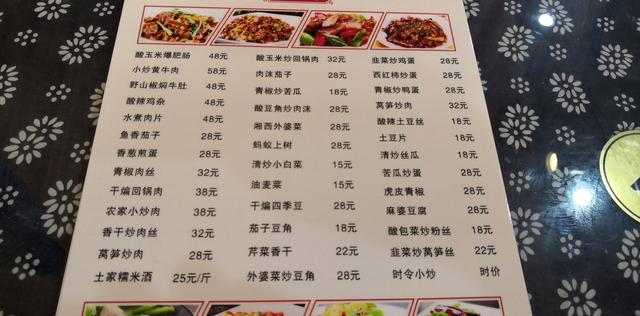 酸玉米爆肥肠 48元
小炒黄牛肉 58元
野山椒焖牛肚 48元
酸辣鸡杂 48元
水煮肉片 48元
鱼香茄子 28元
香葱煎蛋 28元
青椒肉丝 32元
干煸回锅肉 38元
农家小炒肉 38元
香干炒肉丝 32元
莴笋炒肉 28元
土家糯米酒 25元/斤
酸玉米炒回锅肉 32元
肉沫茄子 28元
青椒炒苦瓜 18元
酸豆角炒肉沫 28元
湘西外婆菜 28元
蚂蚁上树 28元
清炒小白菜 15元
油麦菜 15元
干煸四季豆 28元
茄子豆角 18元
芹菜香干 22元
外婆菜炒豆角 28元
韭菜炒鸡蛋 28元
西红柿炒蛋 28元
青椒炒鸭蛋 28元
莴笋炒肉 32元
酸辣土豆丝 18元
土豆片 18元
清炒丝瓜 18元
苦瓜炒蛋 28元
虎皮青椒 28元
麻婆豆腐 28元
酸包菜炒粉丝 18元
韭菜炒莴笋丝 22元
时令小炒 时价